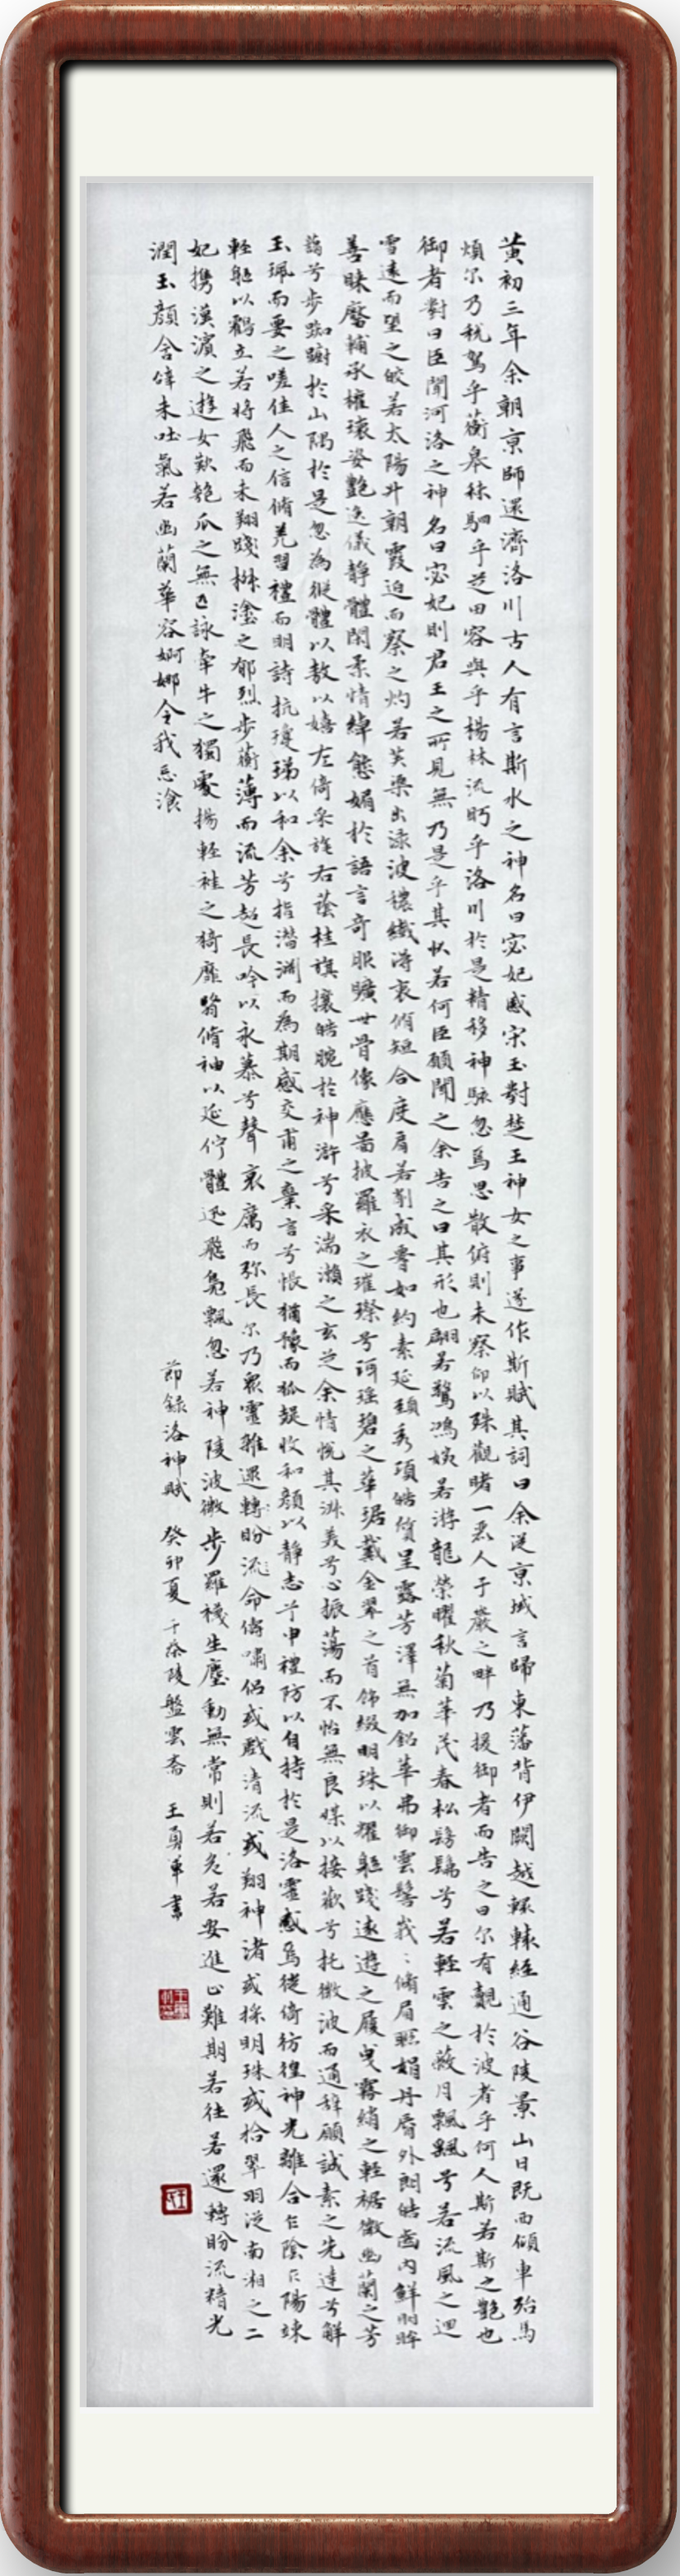 黄初三年余朝京師還濟洛川古人有言斯水之神名曰宓妃感宋玉對楚王神女之事遂作斯賦其詞曰余從京域言歸東藩背伊闕越轘轅經通谷陵景山日既西傾車殆馬
煩尔乃稅駕乎蘅皋秣駟乎芝田容與乎楊林流眄乎洛川於是精移神駭忽焉思散俯則未察仰以殊觀睹一麗人于巖之畔乃援御者而告之曰尔有覿於彼者乎何人斯若斯之艷也
御者對曰臣聞河洛之神名曰宓妃則君王之所見無乃是乎其狀若何臣願聞之余告之曰其形也翩若驚鴻婉若游龍榮曜秋菊華茂春松髣髴兮若輕雲之蔽月飄飖兮若流風之迴
雪遠而望之皎若太陽升朝霞迫而察之灼若芙蕖出淥波穠纖得衷脩短合度肩若削成腰如約素延頸秀項皓質呈露芳澤無加鉛華弗御雲髻峩〻脩眉聯娟丹脣外朗皓齒内鮮明眸
善睞靨輔承權瓌姿艷逸儀靜體閑柔情綽態媚於語言奇服曠世骨像應圖披羅衣之璀璨兮珥瑶碧之華琚戴金翠之首飾綴明珠以耀軀踐遠遊之履曳霧綃之輕裾微幽蘭之芳
藹兮步踟躕於山隅於是忽為縱體以敖以嬉左倚采旄右蔭桂旗攘皓腕於神滸兮采湍瀨之玄芝余情悅其淑美兮心振蕩而不怡無良媒以接歡兮托微波而通辞願誠素之先達兮解
玉珮而要之嗟佳人之信脩羌習禮而明詩抗瓊珶以和余兮指潛淵而為期感交甫之棄言兮悵猶豫而狐疑收和顔以靜志兮申禮防以自持於是洛靈感焉徙倚彷徨神光離合乍陰乍陽竦
輕軀以鶴立若將飛而未翔踐椒塗之郁烈步蘅薄而流芳超長吟以永慕兮聲哀厲而弥長尔乃眾靈雜遝轉盼流命儔嘯侶或戲清流或翔神渚或採明珠或拾翠羽從南湘之二
妃攜漢濱之遊女歎匏瓜之無匹詠牽牛之獨處揚輕袿之猗靡翳脩袖以延佇體迅飛鳧飄忽若神陵波微步羅襪生塵動無常則若危若安進止難期若往若還轉盼流精光
潤玉顔含辞未吐氣若幽蘭華容婀娜令我忘飡
節録洛神賦 癸卯夏于茶陵盤雲斋 王勇軍書